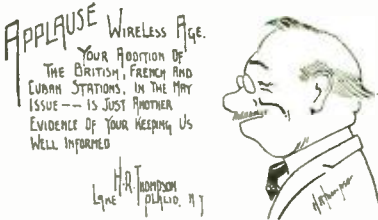 APPLAUSE WIRELESS AGE.
YOUR ADDITION OF
THE BRITISH, FRENCH AND
CUBAN STATIONS, IN THE MAY
ISSUE -- IS JUST ANOTHER
EVIDENCE OF YOUR KEEPING US
WELL INFORMED
H.R. THOMPSON
LAKE PLACID. N.Y